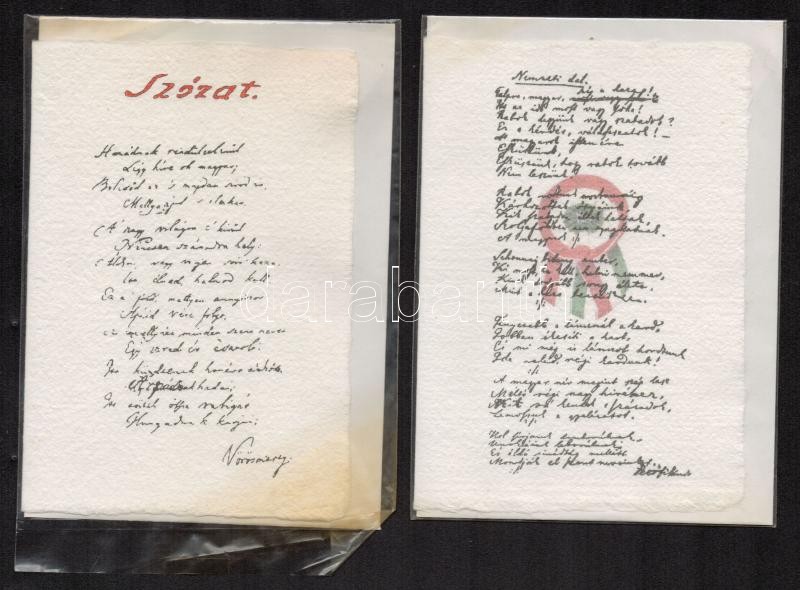 Szózat.
Hazádnak rendületlenűl
Légy híve oh magyar;
Bölcsőd az 's majdan sírod is,
Melly ápol 's eltakar.
A nagy világon e' kívűl
Nincsen számodra hely:
Áldjon vagy verjen sors keze,
Itt élned halnod kell.
Ez a' föld, mellyen annyiszor
Apáid' vére folyt,
Ez, mellyhez minden szent nevet
Egy ezred év csatolt.
Itt küzdtenek honért a' hős
Árpádnak hadai;
Itt törtek össze rabigát
Hunyadnak karjai;
Vörösmarty
Nemzeti dal.
Talpra magyar, hí a haza!
Itt az idő, most vagy soha!
Rabok legyünk vagy szabadok?
Ez a kérdés, válasszatok! –
A magyarok istenére
Esküszünk,
Esküszünk, hogy rabok tovább
Nem leszünk!
Rabok voltunk mostanáig
Kárhozottak ősapáink,
Kik szabadon éltek haltak,
Szolgaföldben nem nyughatnak.
A magyarok
Sehonnai bitang ember,
Ki most, ha kell, halni nem mer,
Kinek drágább rongy élete,
Mint a haza becsülete.
Fényesebb a láncnál a kard,
Jobban ékesíti a kart,
És mi mégis láncot hordtunk
Ide veled, régi kardunk!
A magyar név megint szép lesz
Méltó régi nagy híréhez,
Mit rá kentek a századok,
Lemossuk a gyalázatot.
Hol sírjaink domborulnak,
Unokáink leborulnak,
És áldó imádság mellett
Mondják el szent neveinket.
Petőfi Sándor
darabanth